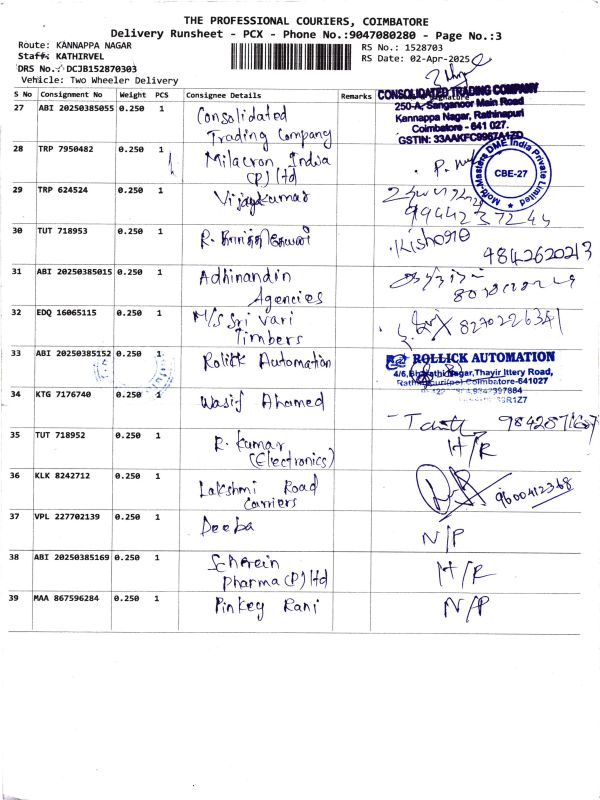 THE PROFESSIONAL COURIERS, COIMBATORE
Delivery Runsheet - PCX - Phone No.:9047080280 - Page No.:3
Route: KANNAPPA NAGAR
RS No.: 1528703
Staff: KATHIRVEL
RS Date: 02-Apr-2025
DRS No.: DCJB152870303
Vehicle: Two Wheeler Delivery
S No Consignment No Weight PCS Consignee Details Remarks
CONSOLIDATED TRADING COMPANY
250-A, Sanganoor Main Road
Kannappa Nagar, Rathinapuri
Coimbatore - 641 027.
GSTIN: 33AAKFC9967A1ZD
27 ABI 20250385055 0.250 1 Consolidated
Trading Company
28 TRP 7950482 0.250 1 Milacron India
(P) ltd
Mold-Masters DME India Private Limited
CBE-27
29 TRP 624524 0.250 1 Vijayakumar
9944237245
30 TUT 718953 0.250 1 R. Kishore
9842620213
31 ABI 20250385015 0.250 1 Adhinandin
Agencies
32 EDQ 16065115 0.250 1 M/s Sri Vari
Timbers
8270226341
33 ABI 20250385152 0.250 1 Rolick Automation
ROLLICK AUTOMATION
4/6, Bharathi Nagar, Thayir Ittery Road,
Rathinapuri(po) Coimbatore-641027
34 KTG 7176740 0.250 1 Wasif Ahamed
35 TUT 718952 0.250 1 R. Kumar
(Electronics)
H/R
36 KLK 8242712 0.250 1 Lakshmi Road
Carriers
9600412368
37 VPL 227702139 0.250 1 Deeba
N/P
38 ABI 20250385169 0.250 1 Scherein
Pharma (P) ltd
H/R
39 MAA 867596284 0.250 1 Pinkey Rani
N/P